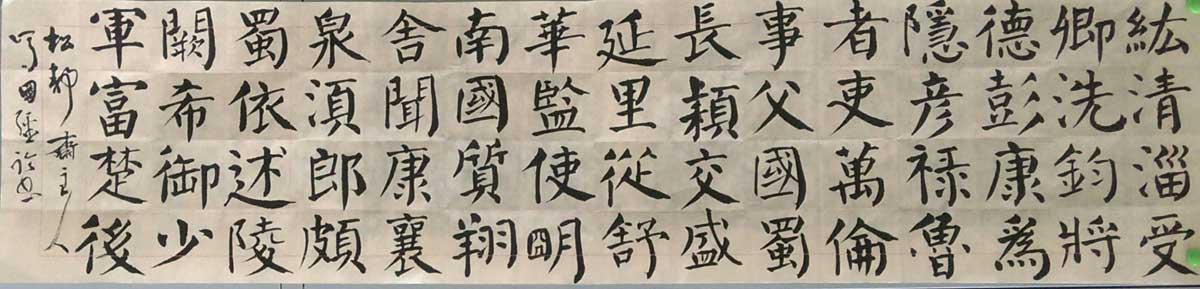 紘清淄受
卿洗鈞將
德彭康爲
隱彥祿魯
者吏萬倫
事父國蜀
長穎交盛
延里從舒
華監使朙
南國質翔
舍聞康襄
泉須郎頗
蜀依述陵
闕希御少
軍富楚後
松靜齋主人